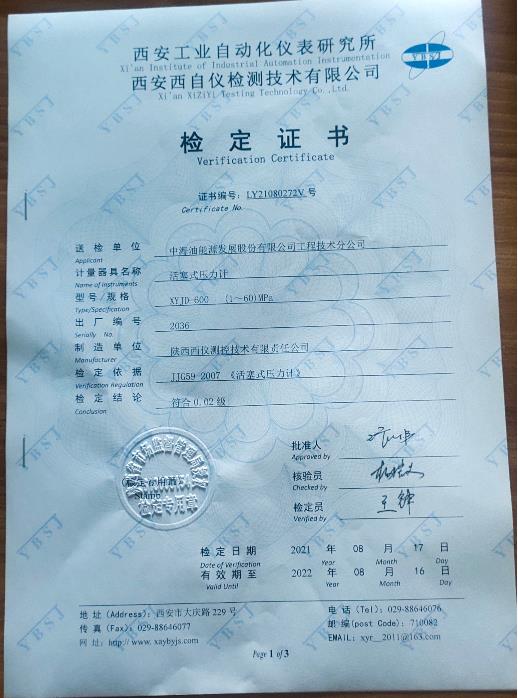 西安工业自动化仪表研究所
Xi'an Institute of Industrial Automation Instrumentation
西安西自仪检测技术有限公司
Xi'an XiZiYi Testing Technology Co.,Ltd.
YBSJ
检定证书
Verification Certificate
证书编号：LY21080272V 号
Certificate No.
送检单位 中海油能源发展股份有限公司工程技术分公司
Applicant
计量器具名称 活塞式压力计
Name of Instruments
型号/规格 XYJD-600 (1～60)MPa
Type/Specification
出厂编号 2036
Serially No.
制造单位 陕西西仪测控技术有限责任公司
Manufacturer
检定依据 JJG59-2007 《活塞式压力计》
Verification Regulation
检定结论 符合 0.02 级
Conclusion
检定专用章
Stamp
批准人
Approved by
核验员
Checked by
检定员 王锋
Verified by
检定日期 2021 年 08 月 17 日
Date of Verification Year Month Day
有效期至 2022 年 08 月 16 日
Valid Until Year Month Day
地址 (Address)：西安市大庆路 229 号
电话 (Tel)：029-88646076
传真 (Fax)：029-88646077
邮编 (post Code)：710082
网址：http://www.xaybyjs.com
EMAIL：xyr__2011@163.com
Page 1 of 3